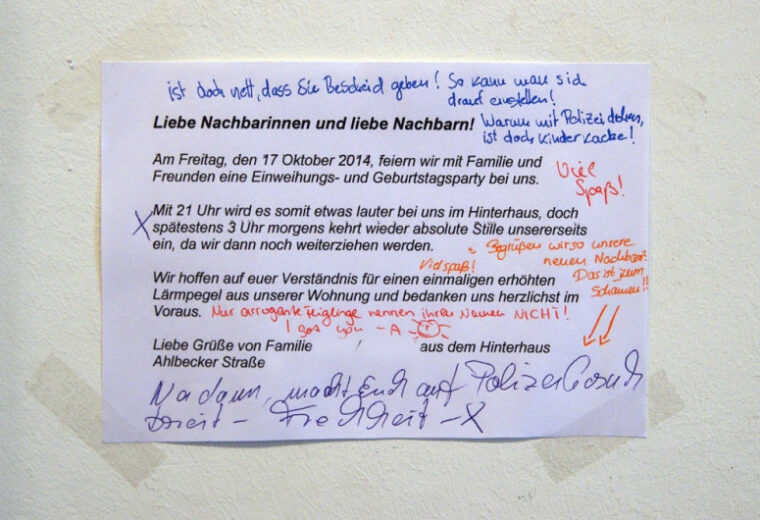 ist doch nett, dass Sie Bescheid geben! So kann man sich
drauf einstellen!
Warum mit Polizei drohen,
ist doch Kinderkacke!
Liebe Nachbarinnen und liebe Nachbarn!
Am Freitag, den 17 Oktober 2014, feiern wir mit Familie und
Freunden eine Einweihungs- und Geburtstagsparty bei uns.
Viel
Spaß!
X
Mit 21 Uhr wird es somit etwas lauter bei uns im Hinterhaus, doch
spätestens 3 Uhr morgens kehrt wieder absolute Stille unsererseits
ein, da wir dann noch weiterziehen werden.
Begrüßen wir so unsere
neuen Nachbarn?
Das ist zum
Schämen!!
Viel spaß!
Wir hoffen auf euer Verständnis für einen einmaligen erhöhten
Lärmpegel aus unserer Wohnung und bedanken uns herzlichst im
Voraus.
Nur arrogante Feiglinge nennen ihren Namen NICHT!
-A
Liebe Grüße von Familie aus dem Hinterhaus
Ahlbecker Straße
Na dann, macht Euch auf Polizei Besuch
bereit - Frechheit - X